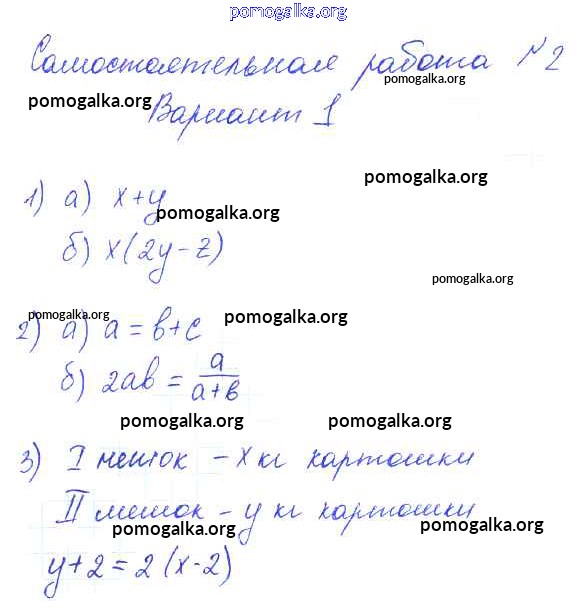 pomogalka.org
Самостоятельная работа №2
pomogalka.org
pomogalka.org
Вариант 1
pomogalka.org
1) а) x+y
pomogalka.org
б) x(2y-z)
pomogalka.org
pomogalka.org
pomogalka.org
2) а) a=b+c
б) 2ab = a/(a+b)
pomogalka.org
pomogalka.org
3) I мешок - x кг картошки
II мешок - y кг картошки
pomogalka.org
pomogalka.org
y+2=2(x-2)